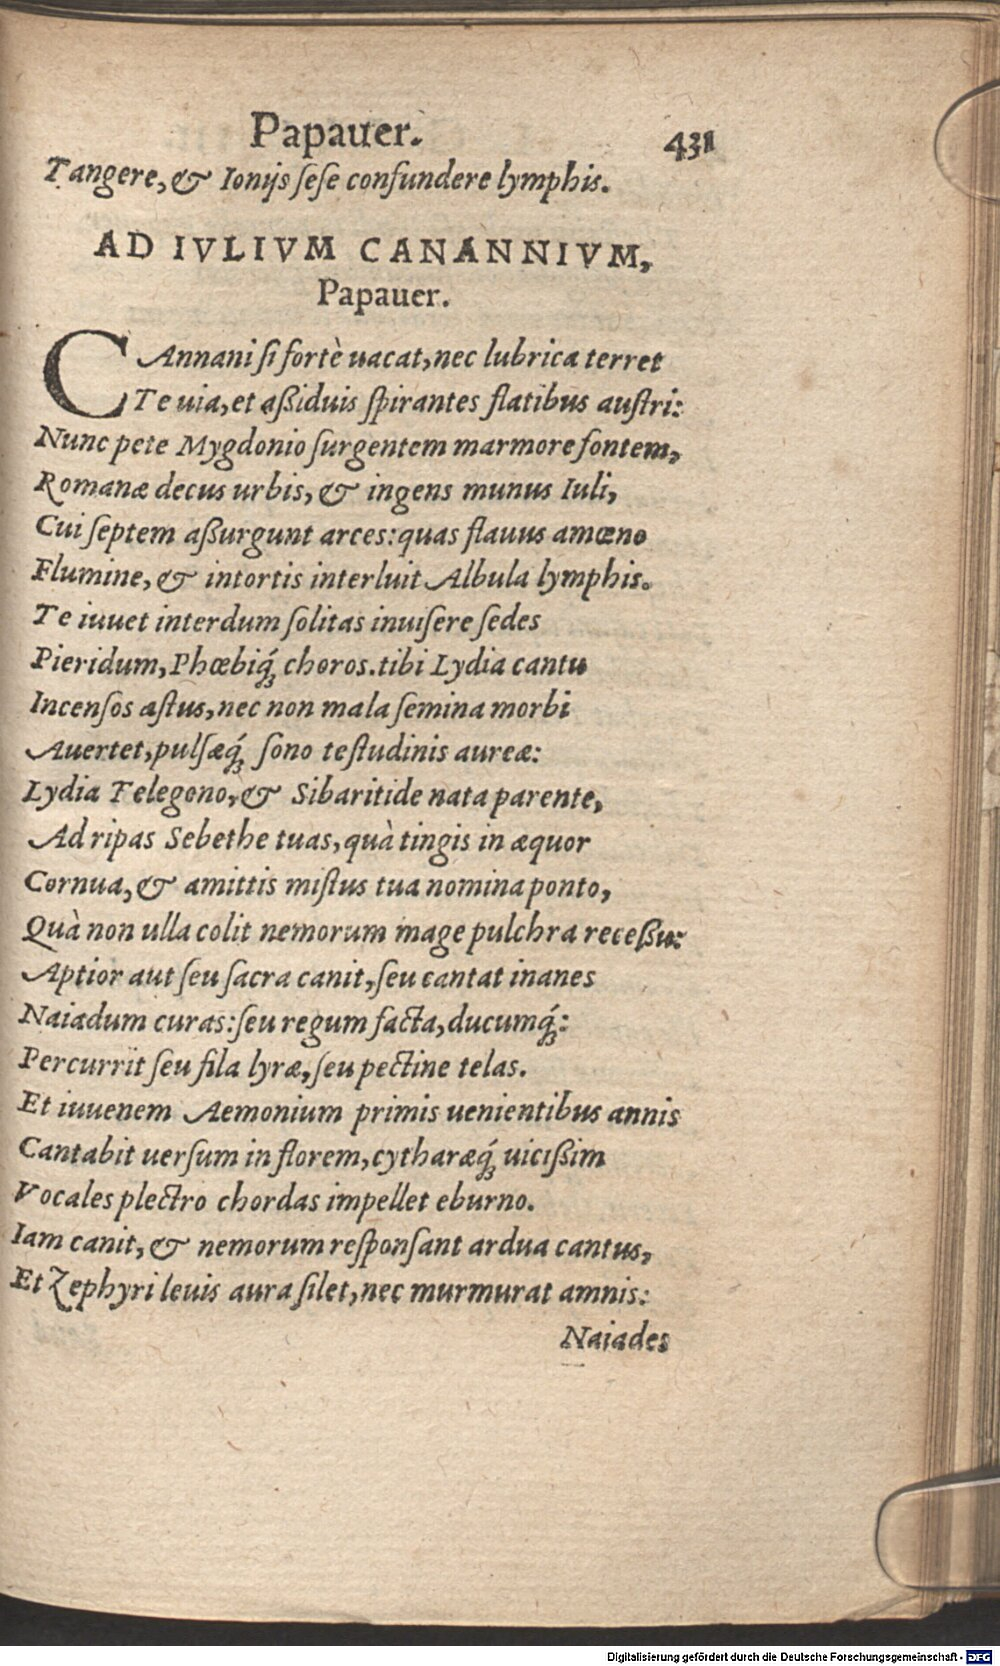 Papauer. 431
Tangere, & Ionijs ſeſe confundere lymphis.
AD IVLIVM CANANNIVM,
Papauer.
CAnnani ſi fortè uacat, nec lubrica terret
Te uia, et aßiduis ſpirantes flatibus auſtri:
Nunc pete Mygdonio ſurgentem marmore fontem,
Romanæ decus urbis, & ingens munus Iuli,
Cui ſeptem aßurgunt arces: quas flauus amœno
Flumine, & intortis interluit Albula lymphis.
Te iuuet interdum ſolitas inuiſere ſedes
Pieridum, Phœbiq́; choros. tibi Lydia cantu
Incenſos æſtus, nec non mala ſemina morbi
Auertet, pulſæq́; ſono teſtudinis aureæ:
Lydia Telegono, & Sibaritide nata parente,
Ad ripas Sebethe tuas, quà tingis in æquor
Cornua, & amittis miſtus tua nomina ponto,
Quà non ulla colit nemorum mage pulchra receßu:
Aptior aut ſeu ſacra canit, ſeu cantat inanes
Naiadum curas: ſeu regum facta, ducumq́;:
Percurrit ſeu fila lyræ, ſeu pectine telas.
Et iuuenem Aemonium primis uenientibus annis
Cantabit uerſum in florem, cytharæq́; uicißim
Vocales plectro chordas impellet eburno.
Iam canit, & nemorum reſponſant ardua cantus,
Et Zephyri leuis aura ſilet, nec murmurat amnis:
Naiades
Digitalisierung gefördert durch die Deutsche Forschungsgemeinschaft - DFG